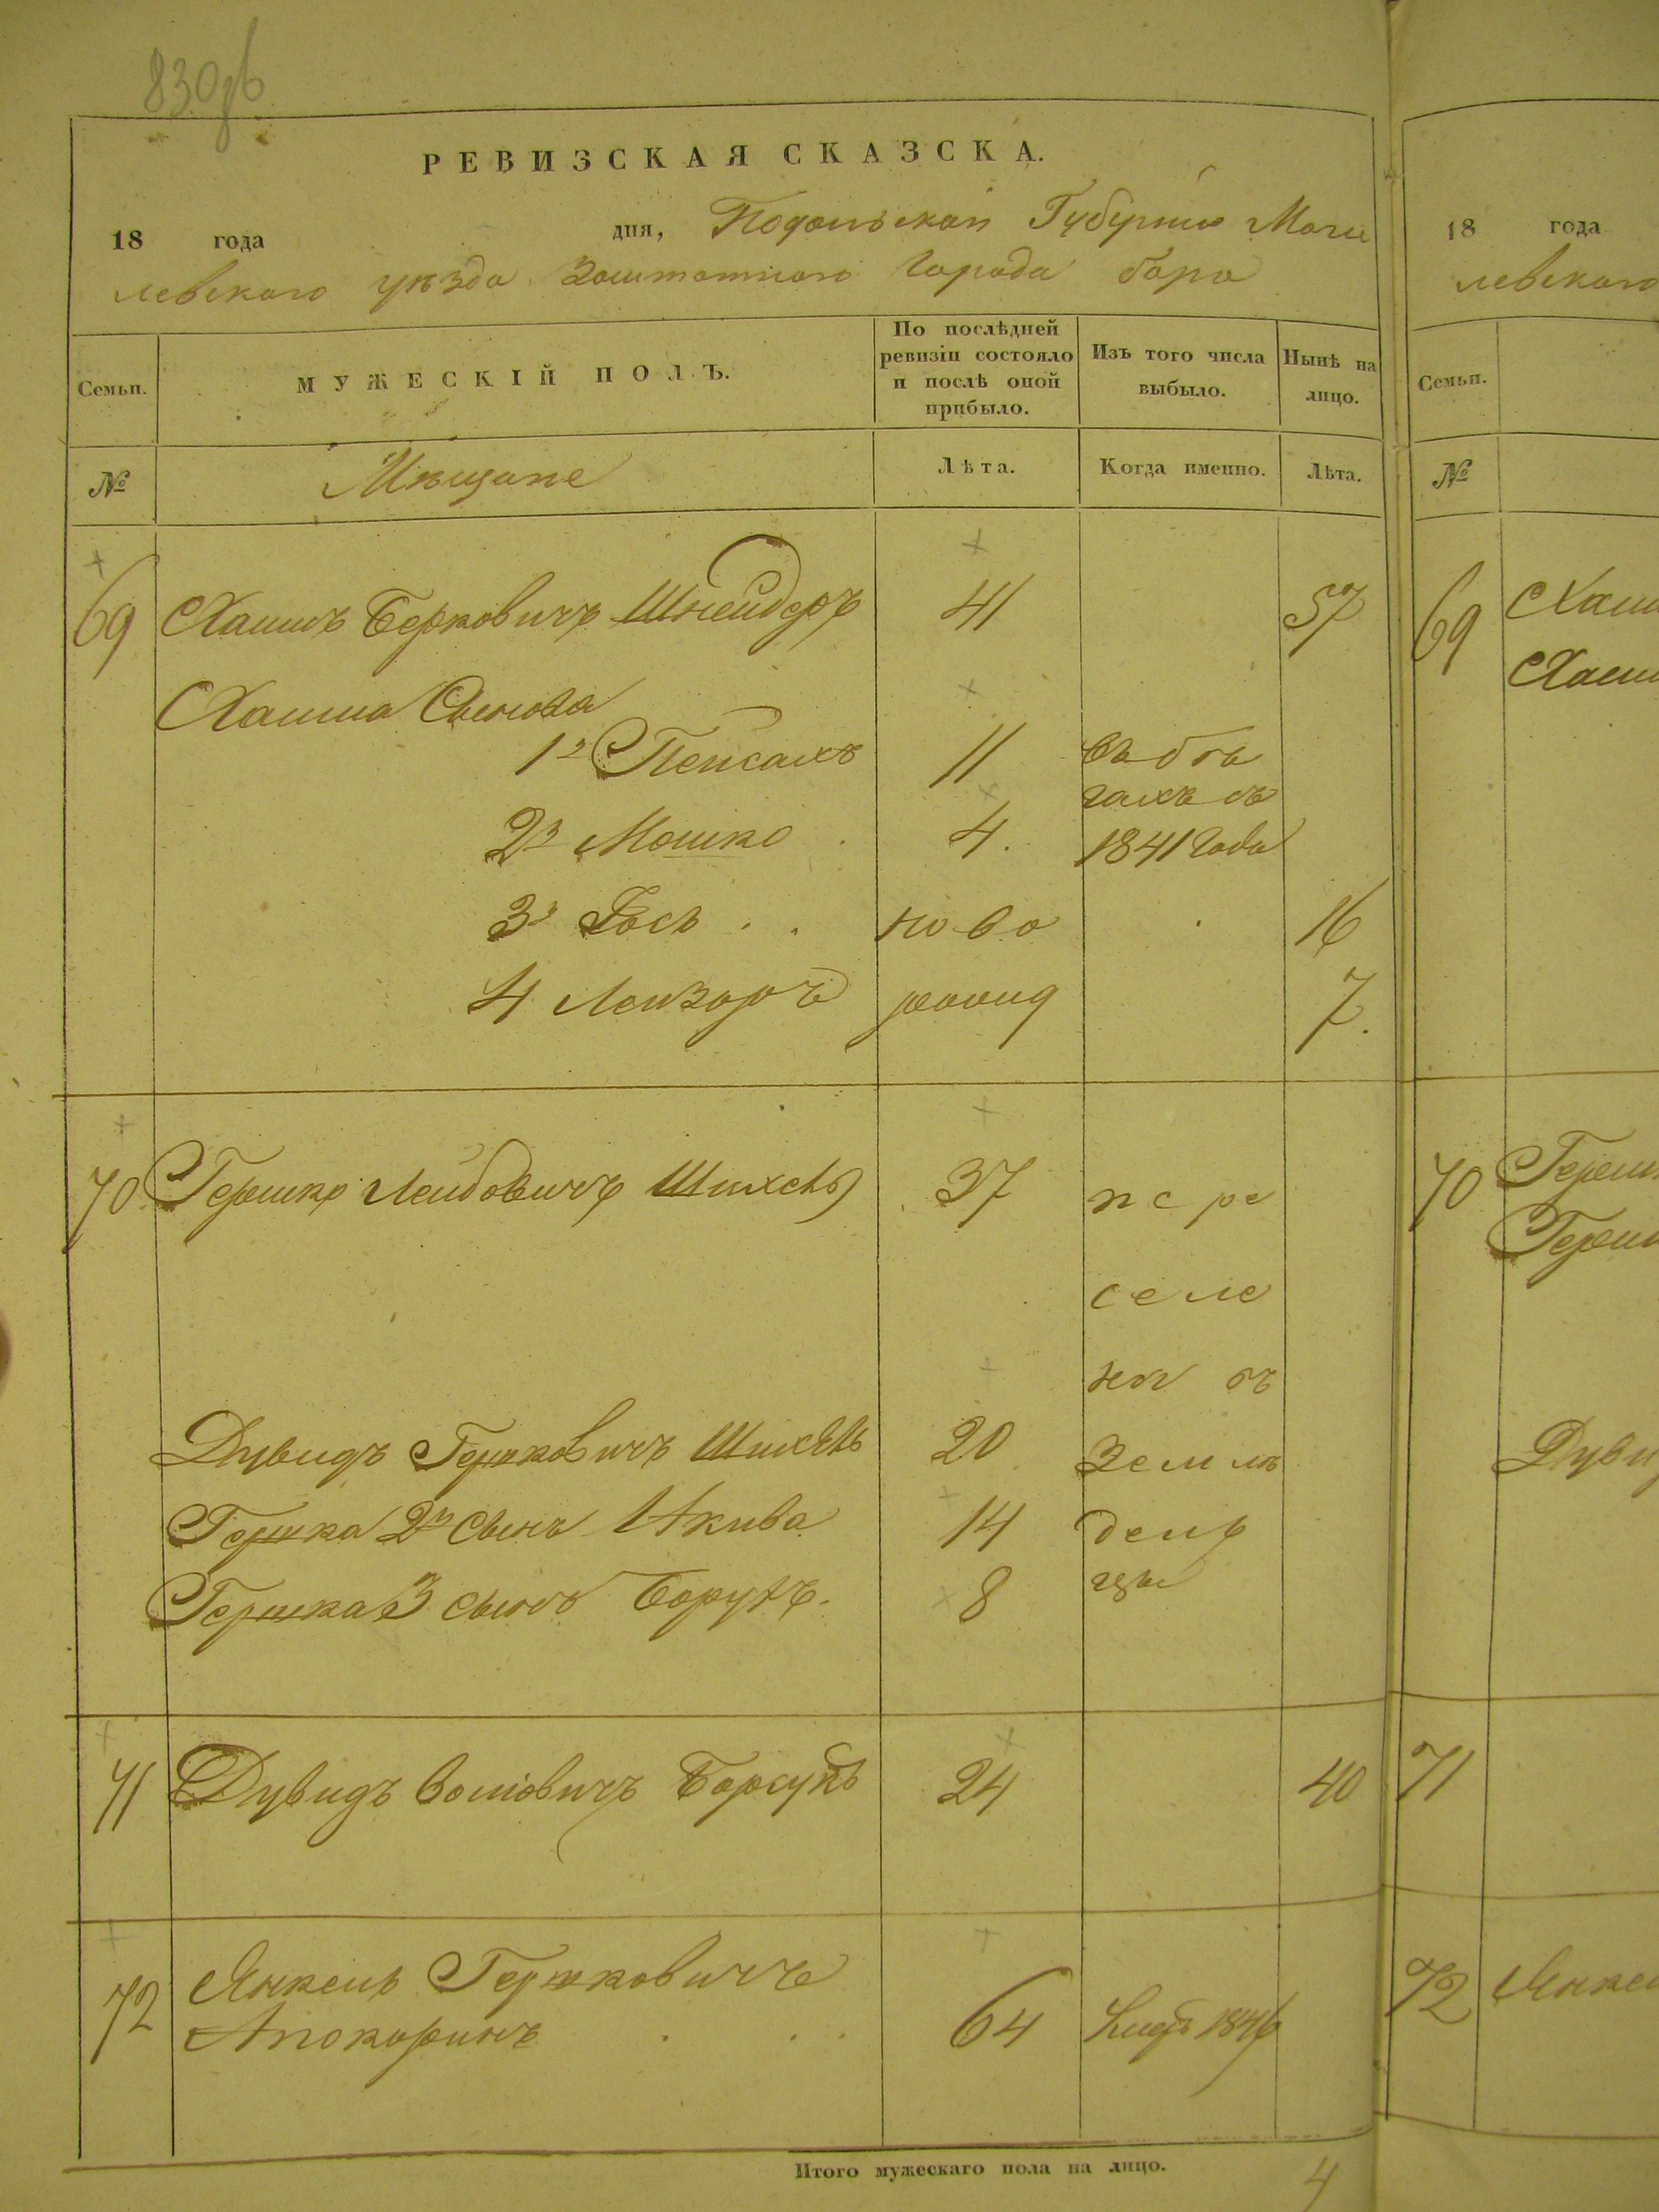 РЕВИЗСКАЯ СКАЗСКА.
18 года дня, Подольской Губернии Моги
левского уѣзда Заштатного Города бара
Семьи.
МУЖЕСКІЙ ПОЛЪ.
По послѣдней ревизіи состояло и послѣ оной прибыло.
Изъ того числа выбыло.
Нынѣ на лицо.
№ Мѣщане Лѣта. Когда именно. Лѣта.
69 Хаимъ Берковичъ Шнейдеръ 41 57
Хаима Сынова
1й Пейсахъ 11
2й Мошко 4.
1841 года
3й Гось ново 16
4 Лейзоръ рожид 7.
70 Гершко Лейбовичъ 37 пере
селе
ны въ
Дувидъ Гершковичъ 20 Землѣ
Гершка 2й сынъ Акива 14 дель
Гершка 3 сынъ Борухъ. 8 цы
71 Дувидъ Волковичъ Борсукъ 24 40
72 Янкель Гершковичъ
Апокоринъ 64 1846
Итого мужескаго пола на лицо. 4
18 года
левского
Семьи.
№
69 Хаим
Хаим
70 Герш
Герш
Дуви
71
72 Янке